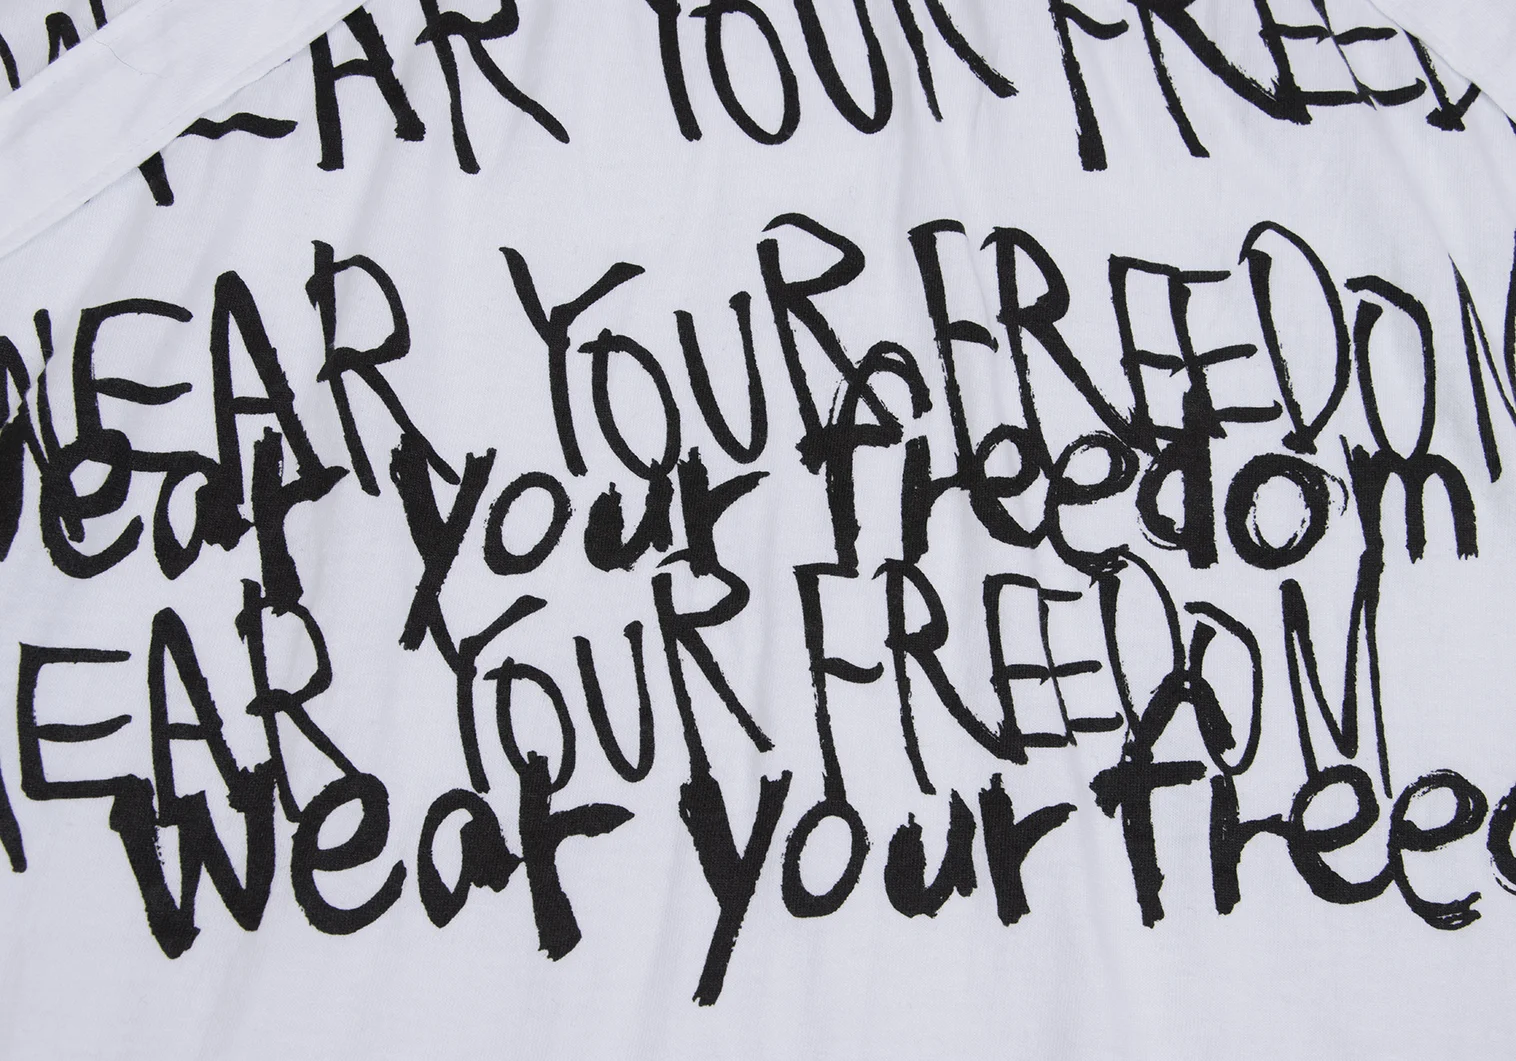 WEAR YOUR FREED
WEAR YOUR FREEDOM
wear your freedom
EAR YOUR FREEDOM
wear your freed